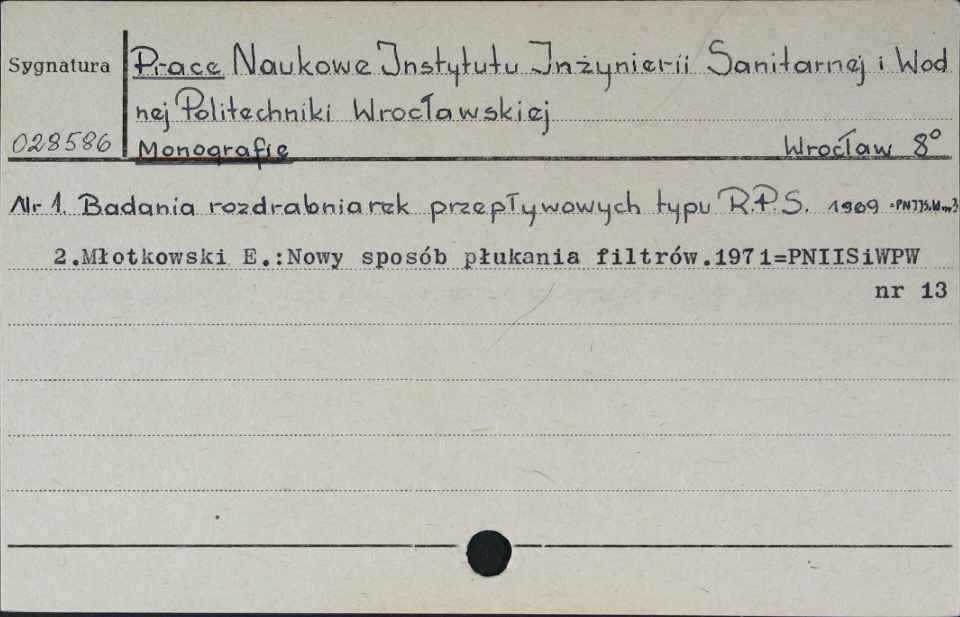 Sygnatura
Prace Naukowe Instytutu Inżynierii Sanitarnej i Wod
nej Politechniki Wrocławskiej
028586
Monografie Wrocław 8°
Nr 1. Badania rozdrabniarek przepływowych typu R.P.S. 1969
2.Młotkowski E.:Nowy sposób płukania filtrów.1971=PNIISiWPW
nr 13